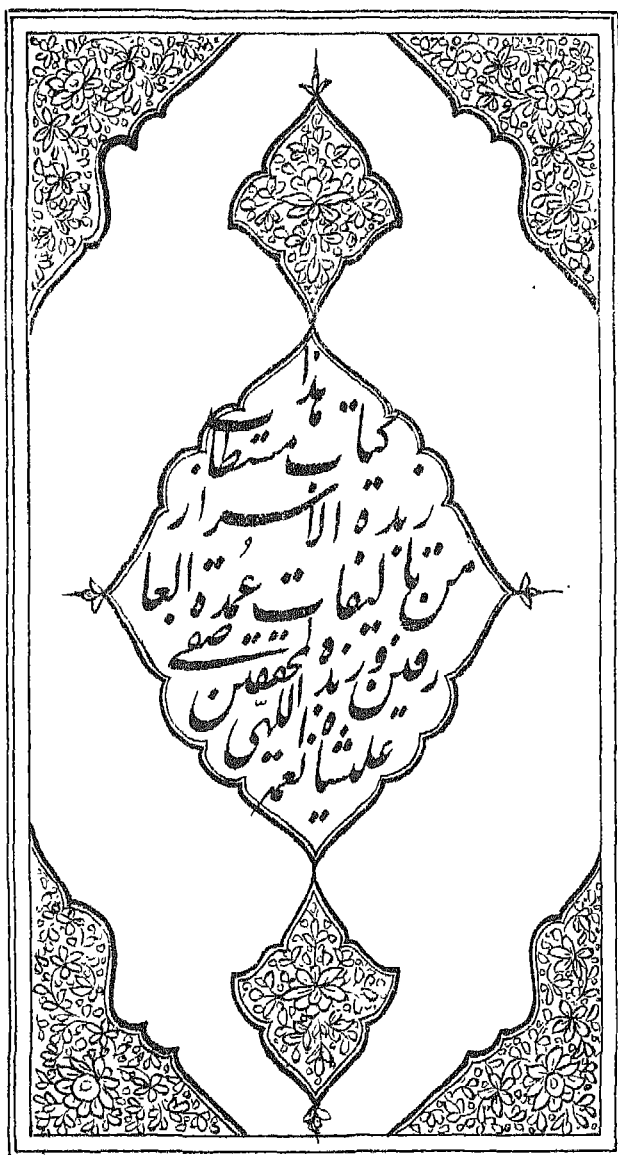 هذا
کتاب مستطاب
زبده الاسرار
من تالیفات عمدة العا
رفین و زبده المحققین صفی
علیشاه نعمة اللهی